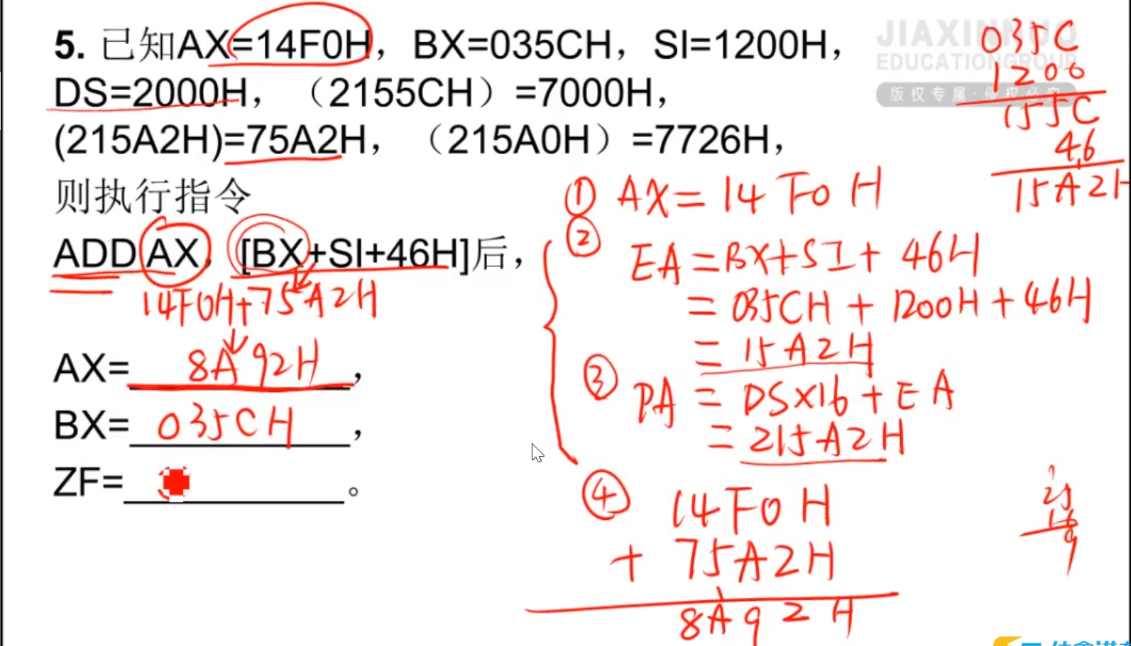 5. 已知AX=14F0H，BX=035CH，SI=1200H，
DS=2000H，（2155CH）=7000H，
(215A2H)=75A2H，（215A0H）=7726H，
则执行指令
ADD AX，[BX+SI+46H]后，
14F0H+75A2H
AX= 8A92H，
BX= 035CH，
ZF=。
JIAXINNUO
EDUCATIONGROUP
版权专属·侵权必究
035C
1200
155C
46
15A2H
① AX=14F0H
② EA=BX+SI+46H
=035CH+1200H+46H
=15A2H
③ PA=DSX16+EA
=215A2H
④ 14F0H
+ 75A2H
8A92H
25
16
9